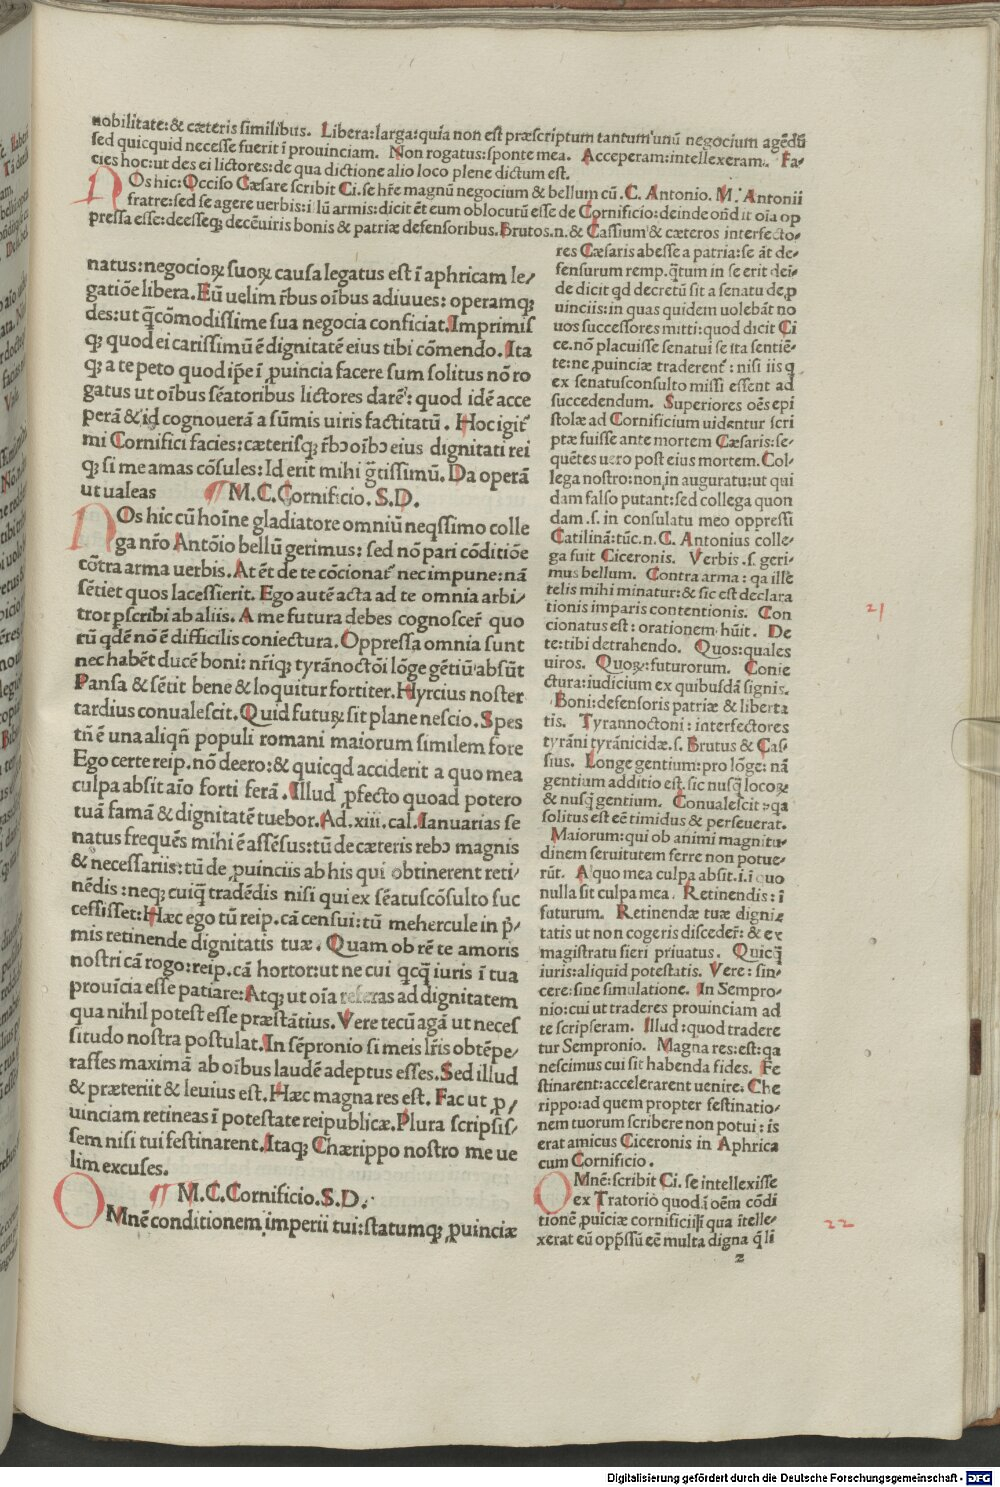 nobilitate:& cæteris similibus. Libera:larga:quia non est præscriptum tantum unū negocium agēdū
sed quicquid necesse fuerit ī prouinciam. Non rogatus:sponte mea. Acceperam:intellexeram. Fa-
cies hoc:ut des ei lictores:de qua dictione alio loco plene dictum est.
NOs hic:Occiso Cæsare scribit Ci.se hr̄e magnū negocium & bellum cū .C. Antonio. M. Antonii
fratre:sed se agere uerbis:i lū armis:dicit ēt eum oblocutū esse de Cornificio:deinde ond̄it oīa op
pressa esse:deesseqꝫ decēuiris bonis & patriæ defensoribus.Brutos.n.& Cassium & cæteros interfecto-
natus:negocioꝝ suoꝝ causa legatus est ī aphricam le/
gatiōe libera.Eū uelim r̄bus oībus adiuues: operamqꝫ
des:ut q̄cōmodissime sua negocia conficiat.Imprimis
qꝫ quod ei carissimū ē dignitatē eius tibi cōmendo.Ita
qꝫ a te peto quod ip̄e ī ꝓuincia facere sum solitus nō ro
gatus ut oībus sēatoribus lictores dareꝭ: quod idē acce
perā & id cognouerā a sūmis uiris factitatū. Hoc igit̄
mi Cornifici facies:cæterisqꝫ r̄bꝰ oībꝰ eius dignitati rei
qꝫ si me amas cōsules:Id erit mihi gr̄tissimū.Da operā
ut ualeas ¶ M.C.Cornificio.S.D.
NOs hic cū hoīne gladiatore omniū neq̄ssimo colle
ga nr̄o Antōio bellū gerimus: sed nō pari cōditiōe
cōtra arma uerbis.At ēt de te cōcionat̄ nec impune:nā
sētiet quos lacessierit. Ego autē acta ad te omnia arbi/
tror ꝑscribi ab aliis. A me futura debes cognoscer̄ quo
rū qdē nō ē difficilis coniectura.Oppressa omnia sunt
nec habēt ducē boni: nr̄iqꝫ tyrānoctōi lōge gētiū absūt
Pansa & sētit bene & loquitur fortiter.Hyrcius noster
tardius conualescit.Quid futuꝝ sit plane nescio.Spes
tn̄ ē una aliqn̄ populi romani maiorum similem fore
Ego certe reip.nō deero:& quicqd acciderit a quo mea
culpa absit aīo forti ferā.Illud ꝓfecto quoad potero
tuā famā & dignitatē tuebor.Ad.xiii.cal.Ianuarias se
natus frequēs mihi ē assēsus:tū de cæteris rebꝰ magnis
& necessariis:tū de ꝓuinciis ab his qui obtinerent reti/
nēdis:neqꝫ cuiq̄ tradēdis nisi qui ex sēatuscōsulto suc
cessisset:Hæc ego tū reip.cā censui:tū mehercule in p̄/
mis retinende dignitatis tuæ. Quam ob rē te amoris
nostri cā rogo:reip.cā hortor:ut ne cui qcq̄ iuris ī tua
prouīcia esse patiare:Atqꝫ ut oīa referas ad dignitatem
qua nihil potest esse præstātius. Vere tecū agā ut neces
situdo nostra postulat.In sēpronio si meis lr̄is obtēpe/
rasses maximā ab oībus laudē adeptus esses.Sed illud
& præteriit & leuius est.Hæc magna res est. Fac ut ꝓ/
uinciam retineas ī potestate reipublicæ.Plura scripsis/
sem nisi tui festinarent.Itaqꝫ Chærippo nostro me ue
lim excuses.
¶ M.C.Cornificio.S.D.
OMnē conditionem imperii tui:statumqꝫ ꝓuinciæ
res Cæsaris abesse a patria:se āt de-
fensurum remp.q̄tum in se erit dei-
de dicit qd decretū sit a senatu de ꝓ
uinciis:in quas quidem uolebāt no
uos successores mitti:quod dicit Ci
ce.nō placuisse senatui se ita sentiē-
te:ne ꝓuinciæ traderent̄: nisi iis q
ex senatusconsulto missi essent ad
succedendum. Superiores oēs epi
stolæ ad Cornificium uidentur scri
ptæ fuisse ante mortem Cæsaris:se-
quētes uero post eius mortem.Col-
lega nostro:non in auguratu:ut qui
dam falso putant:sed collega quon
dam .s. in consulatu meo oppressi
Catilinā:tūc.n.C. Antonius colle-
ga fuit Ciceronis. Verbis .s. geri-
mus bellum. Contra arma: qa ille
telis mihi minatur:& sic est declara
tionis imparis contentionis. Con
cionatus est: orationem hūit. De
te:tibi detrahendo. Quos:quales
uiros. Quoꝝ:futurorum. Conie
ctura:iudicium ex quibusdā signis.
Boni:defensoris patriæ & liberta
tis. Tyrannoctoni: interfectores
tyrāni tyrānicidæ.s. Brutus & Cas-
sius. Longe gentium:pro lōge: nā
gentium additio est.sic nusq̄ locoꝝ
& nusq̄ gentium. Conualescit:qa
solitus est eē timidus & perseuerat.
Maiorum:qui ob animi magnitu-
dinem seruitutem ferre non potue-
rūt. A quo mea culpa absit.i.ī quo
nulla sit culpa mea. Retinendis: ī
futurum. Retinendæ tuæ digni-
tatis ut non cogeris discedeꝭ: & ex
magistratu fieri priuatus. Quicq̄
iuris:aliquid potestatis. Vere: sin-
cere:sine simulatione. In Sempro-
nio:cui ut traderes prouinciam ad
te scripseram. Illud:quod tradere
tur Sempronio. Magna res:est:qa
nescimus cui sit habenda fides. Fe
stinarent:accelerarent uenire. Che
rippo:ad quem propter festinatio-
nem tuorum scribere non potui: is
erat amicus Ciceronis in Aphrica
cum Cornificio.
OMnē:scribit Ci.se intellexisse
ex Tratorio quodā oēm cōdi
tionē ꝓuīciæ cornificii:i qua ītelle-
xerat eū opp̄ssū eē multa digna q̄ li
z
21
22
Digitalisierung gefördert durch die Deutsche Forschungsgemeinschaft - DFG